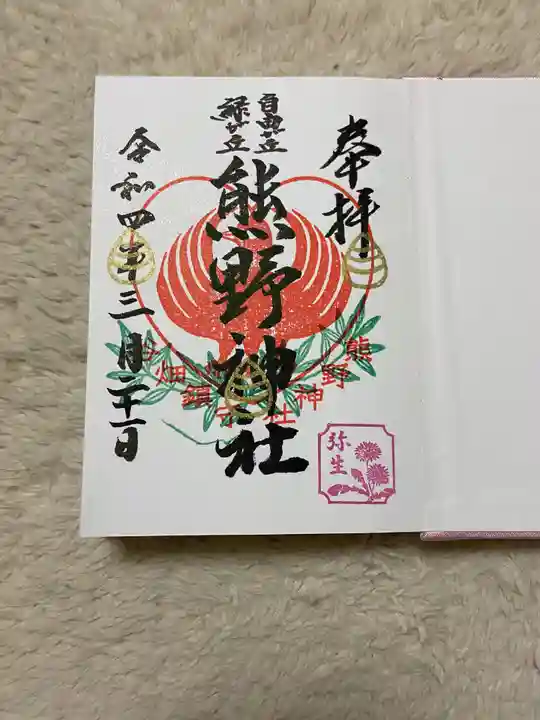 奉拝
自由ヶ丘
緑が丘
熊野神社
令和四年三月二十一日
熊野神社
谷畑鎮守
弥生